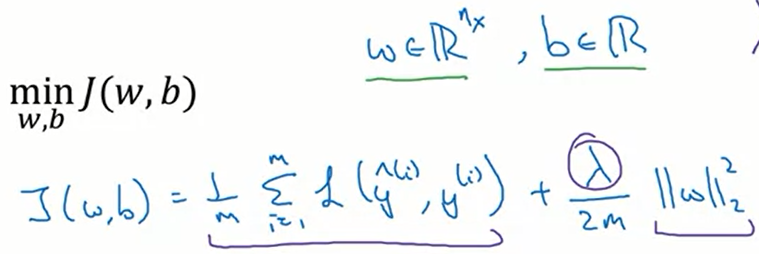 w ∈ ℝ^{n_x}, b ∈ ℝ
min_{w,b} J(w, b)
J(w,b) = \frac{1}{m} \sum_{i=1}^{m} ℒ(ŷ^{(i)}, y^{(i)}) + \frac{λ}{2m} ||w||_2^2